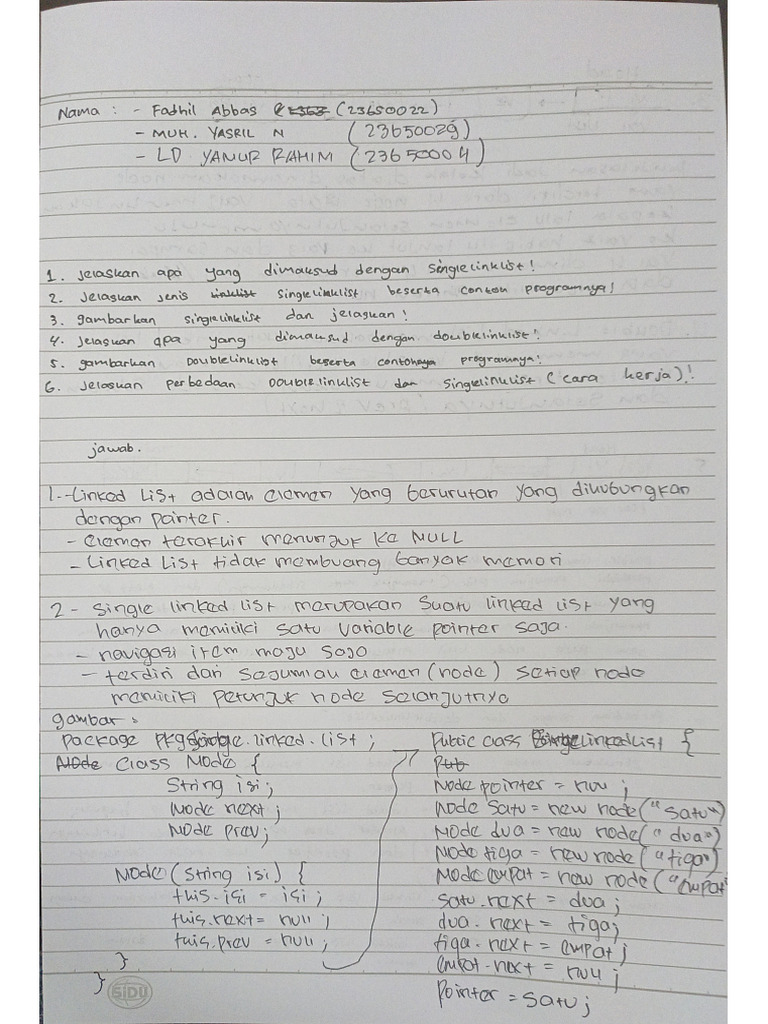 Nama : - Fadhil Abbas (23650022)
- MUH. YASRIL N (23650029)
- LD YANUR RAHIM (23650004)
1. jelaskan apa yang dimaksud dengan singlelinklist!
2. Jelaskan jenis linklist singlelinklist beserta contoh programnya!
3. gambarkan singlelinklist dan jelaskan!
4. jelaskan apa yang dimaksud dengan doublelinklist!
5. gambarkan Doublelinklist beserta contohnya programnya!
6. jelaskan perbedaan Doublelinklist dan singlelinklist (cara kerja)!
jawab.
1.-Linked List adalah elemen yang berurutan yang dihubungkan
dengan pointer.
- elemen terakhir menunjuk ke NULL
- Linked List tidak membuang banyak memori
2 - Single linked list merupakan Suatu linked list yang
hanya memiliki satu variable pointer saja.
- navigasi item maju saja
- terdiri dari sejumlah elemen (node) setiap node
memiliki petunjuk node selanjutnya
gambar :
package pkgSingle.linked.list ;
Node class Node {
String isi ;
Node next ;
Node prev ;
Node (String isi) {
this.isi = isi ;
this.next = null ;
this.prev = null ;
}
}
SiDU
Public class SinglelinkedList {
Pub
Node pointer = null ;
Node Satu = new node ("satu")
Node dua = new node ("dua")
Node tiga = new node ("tiga")
Node empat = new node ("empat"
satu.next = dua ;
dua.next = tiga ;
tiga.next = empat ;
empat.next = null ;
pointer = satu ;